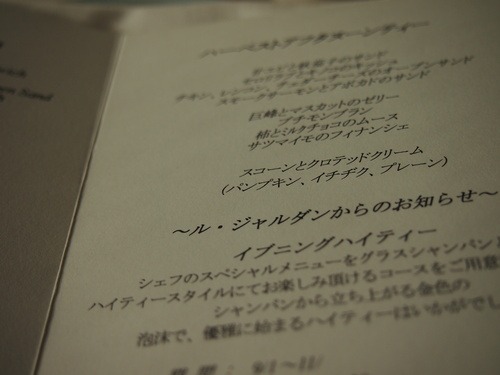 Sand
ハーベストアフタヌーンティー
チキン、レンコン、チェダーチーズのオープンサンド
スモークサーモンとアボカドのサンド
巨峰とマスカットのゼリー
プチモンブラン
柿とミルクチョコのムース
サツマイモのフィナンシェ
スコーンとクロテッドクリーム
(パンプキン、イチヂク、プレーン)
～ル・ジャルダンからのお知らせ～
イブニングハイティー
シェフのスペシャルメニューをグラスシャンパンと
ハイティースタイルにてお楽しみ頂けるコースをご用意
シャンパンから立ち上がる金色の
泡沫で、優雅に始まるハイティーはいかがでし
期間： 9/1～11/